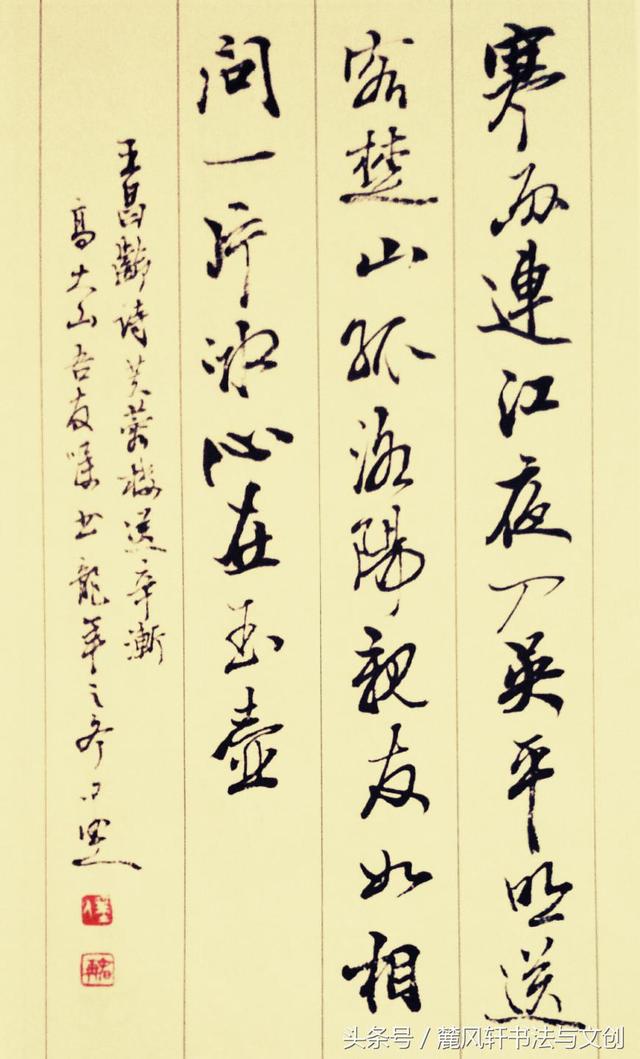 寒雨連江夜入吳平明送
客楚山孤洛陽親友如相
问一片冰心在玉壺
王昌齡诗芙蓉楼送辛漸
高大山吾友嘱书龍年之冬
头条号 / 麓风轩书法与文创